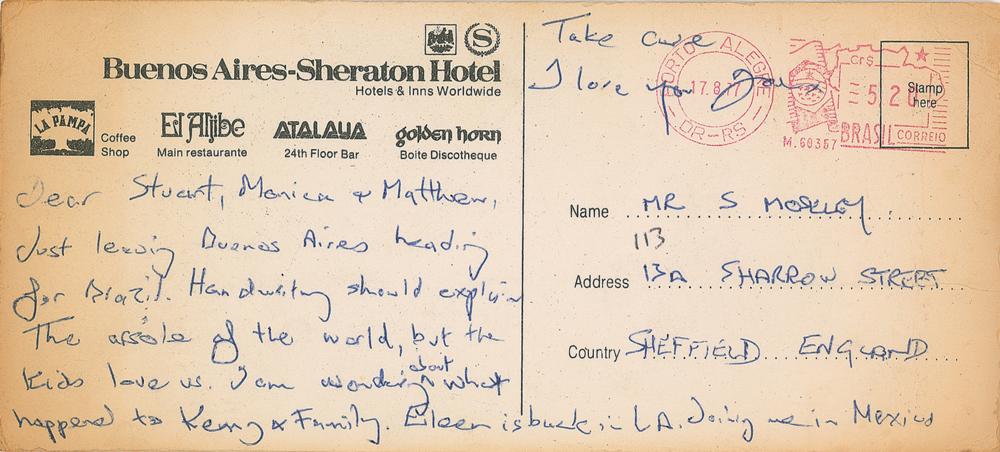 Buenos Aires-Sheraton Hotel
Hotels & Inns Worldwide
LA PAMPA
Coffee
Shop
El Aljibe
Main restaurante
ATALAYA
24th Floor Bar
golden horn
Boite Discotheque
Dear Stuart, Monica & Matthew,
Just leaving Buenos Aires heading
for Brazil. Handwriting should explain
The arsole of the world, but the
kids love us. I am wondering about what
happened to Kenny & Family. Eileen is back in LA. Joing me in Mexico
Take care
I love you
PORTO ALEGRE
17.8.77
DR-RS
M.60367
BRASIL
CORREIO
CR$
520
Stamp
here
Name MR S MOSLEY
113
Address 13A SHARROW STREET
Country SHEFFIELD ENGLAND